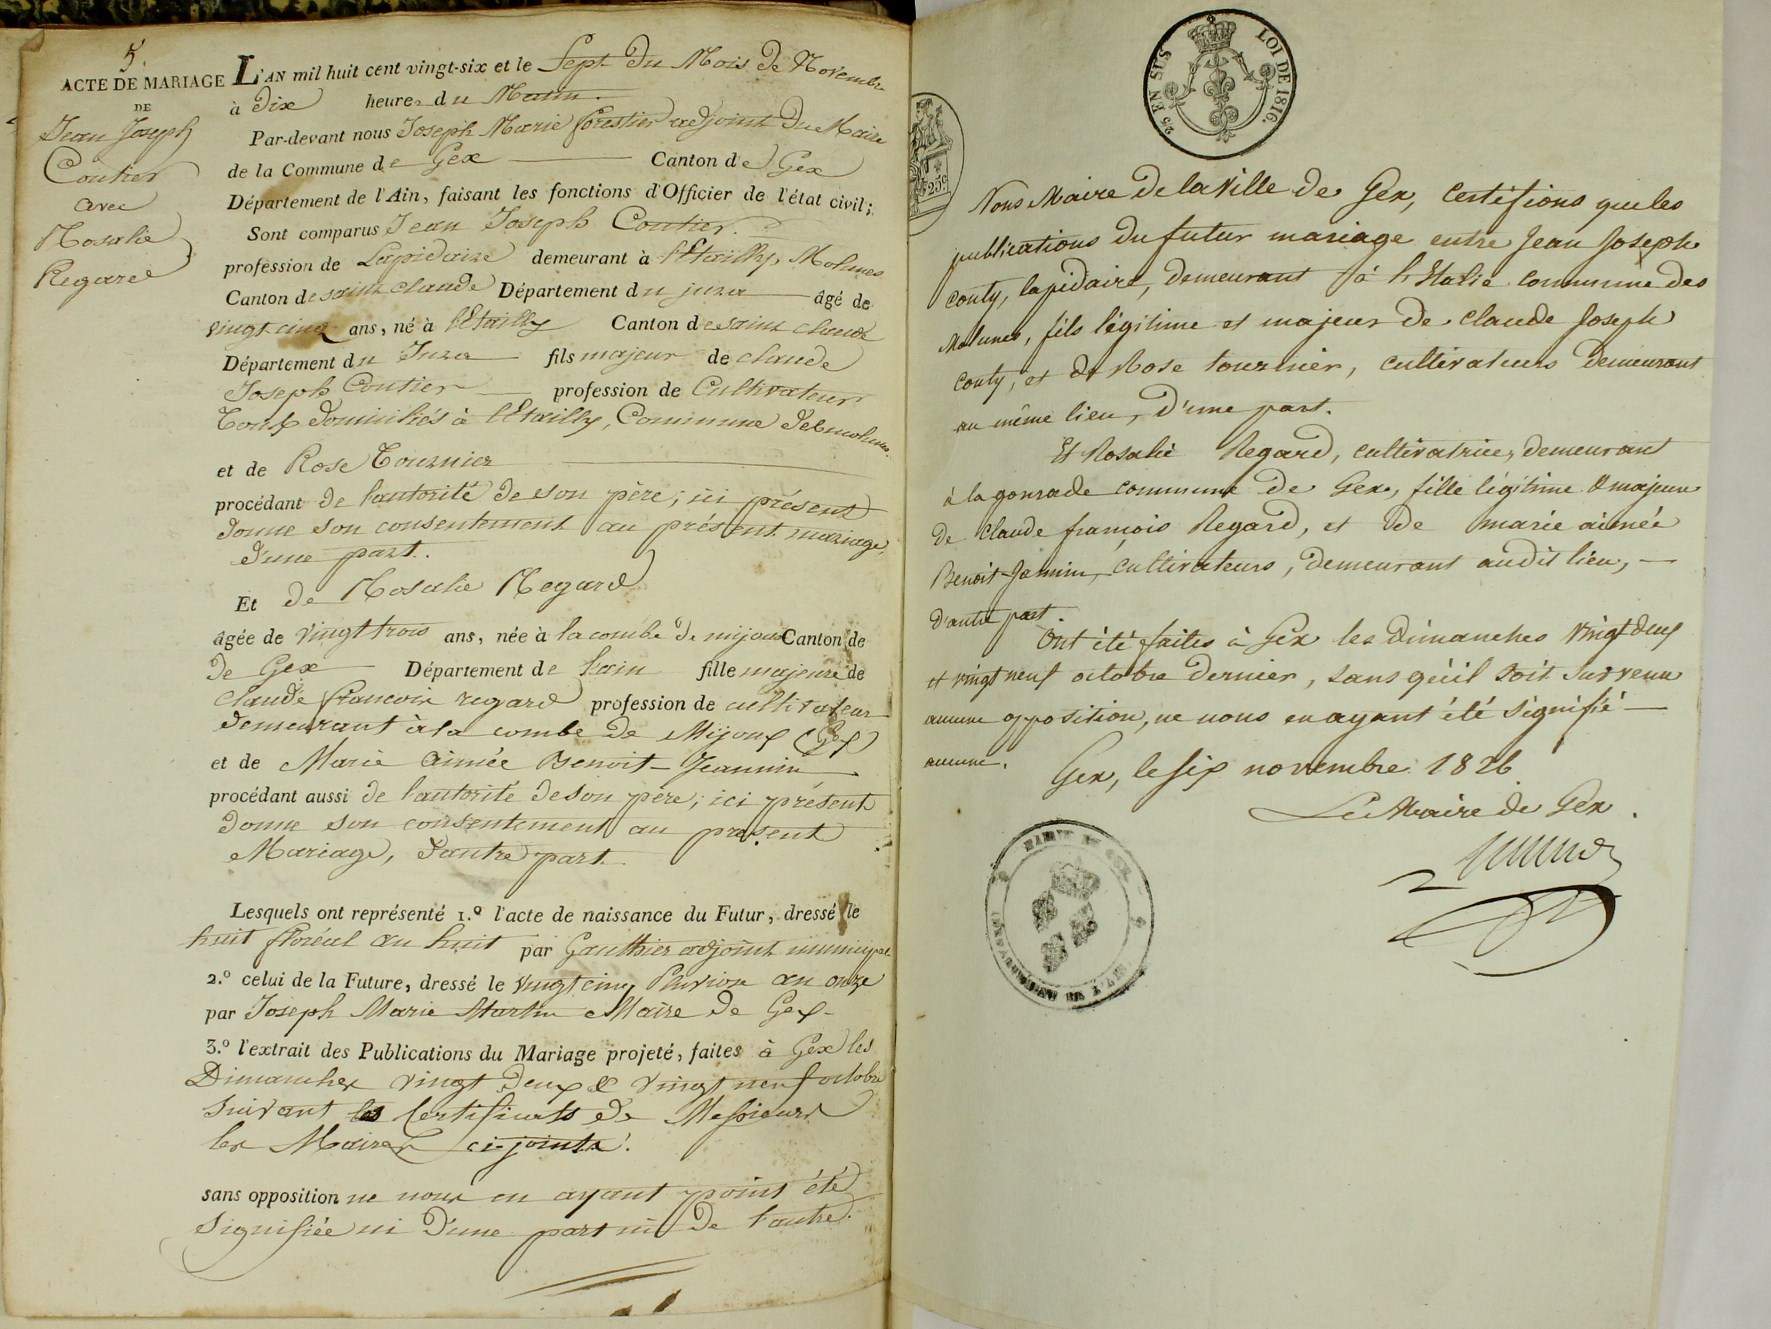 5.
ACTE DE MARIAGE
DE
Jean Joseph
Coutier
avec
Rosalie
Regard
L'AN mil huit cent vingt-six et le Sept du Mois de Novembre
à dix heures du Matin.
Par-devant nous Joseph Marie forestier adjoint du Maire
de la Commune de Gex Canton de Gex
Département de l'Ain, faisant les fonctions d'Officier de l'état civil;
Sont comparus Jean Joseph Coutier.
profession de Lapidaire demeurant à l'Etailly, Molunes
Canton de saint claude Département du jura âgé de
vingt cinq ans, né à l'Etailly Canton de saint claude
Département du Jura fils majeur de claude
Joseph Coutier profession de Cultivateur
Tous domiciliés à l'Etailly, Commune des molunes.
et de Rose Tournier
procédant de l'autorité de son père; ici présent
donne son consentement au présent mariage,
d'une part.
Et de Rosalie Regard
âgée de vingt trois ans, née à la combe de mijoux Canton de
de Gex Département de l'ain fille majeure de
claude francois regard profession de cultivateur
demeurant à la combe de Mijoux (Gex)
et de Marie Aimée Benoit-Jeannin
procédant aussi de l'autorité de son père; ici présent
donne son consentement au présent
Mariage, d'autre part.
Lesquels ont représenté 1.º l'acte de naissance du Futur, dressé le
huit floréal an huit par Gauthier adjoint municipal
2.º celui de la Future, dressé le vingt cinq Pluviose an onze
par Joseph Marie Martin Maire de Gex
3.º l'extrait des Publications du Mariage projeté, faites à Gex les
Dimanches vingt deux & vingt neuf octobre
suivant les Certificats de Messieurs
les Maires ci-joints.
sans opposition ne nous en ayant point été
signifiée ni d'une part ni de l'autre.
25 EN SUS
LOI DE 1816.
25c
Nous Maire de la Ville de Gex, certifions que les
publications du futur mariage entre Jean Joseph
couty, lapidaire, demeurant à l'Etalié commune des
Molunes, fils légitime et majeur de claude Joseph
couty, et de Rose tournier, cultivateurs demeurant
au même lieu, d'une part.
Et Rosalie Regard, cultivatrice, demeurant
à la gourade commune de Gex, fille légitime & majeure
de claude françois Regard, et de marie aimée
Benoit-Jannin, cultivateurs, demeurant audit lieu,
d'autre part.
Ont été faites à Gex les dimanches vingt deux
et vingt neuf octobre dernier, sans qu'il soit survenu
aucune opposition, ne nous en ayant été signifié
aucune.
Gex, le six novembre 1826
Le Maire de Gex.
MAIRIE DE GEX
DÉPARTEMENT DE L'AIN